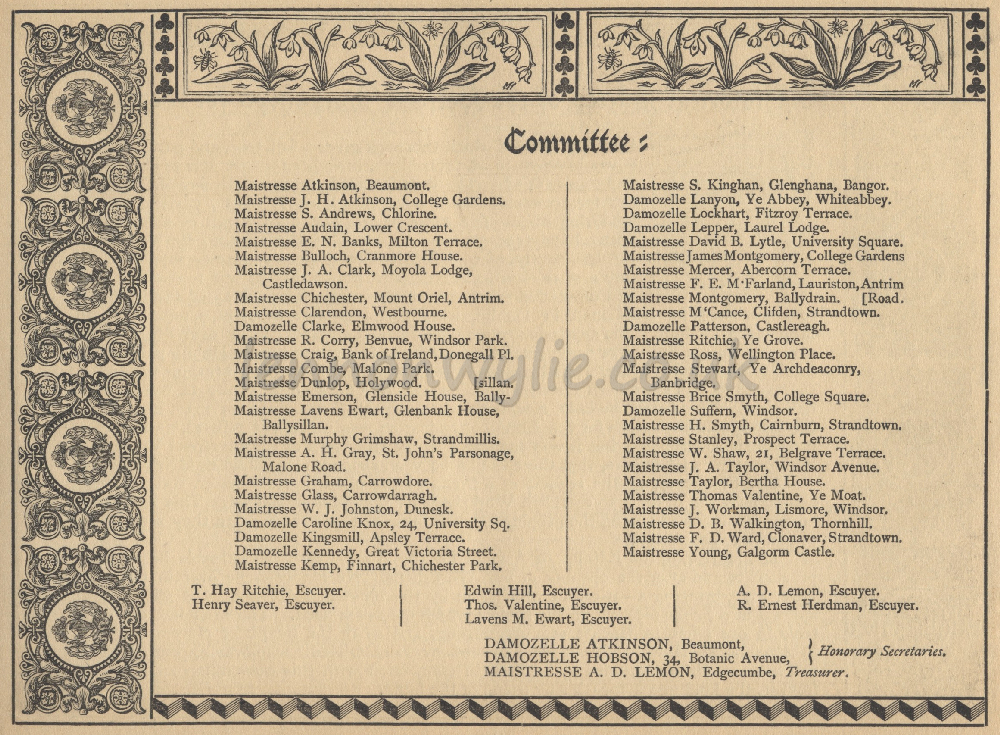 Committee :
Maistresse Atkinson, Beaumont.
Maistresse J. H. Atkinson, College Gardens.
Maistresse S. Andrews, Chlorine.
Maistresse Audain, Lower Crescent.
Maistresse E. N. Banks, Milton Terrace.
Maistresse Bulloch, Cranmore House.
Maistresse J. A. Clark, Moyola Lodge,
Castledawson.
Maistresse Chichester, Mount Oriel, Antrim.
Maistresse Clarendon, Westbourne.
Damozelle Clarke, Elmwood House.
Maistresse R. Corry, Benvue, Windsor Park.
Maistresse Craig, Bank of Ireland, Donegall Pl.
Maistresse Combe, Malone Park.
Maistresse Dunlop, Holywood. [sillan.
Maistresse Emerson, Glenside House, Bally-
Maistresse Lavens Ewart, Glenbank House,
Ballysillan.
Maistresse Murphy Grimshaw, Strandmillis.
Maistresse A. H. Gray, St. John's Parsonage,
Malone Road.
Maistresse Graham, Carrowdore.
Maistresse Glass, Carrowdarragh.
Maistresse W. J. Johnston, Dunesk.
Damozelle Caroline Knox, 24, University Sq.
Damozelle Kingsmill, Apsley Terrace.
Damozelle Kennedy, Great Victoria Street.
Maistresse Kemp, Finnart, Chichester Park.
Maistresse S. Kinghan, Glenghana, Bangor.
Damozelle Lanyon, Ye Abbey, Whiteabbey.
Damozelle Lockhart, Fitzroy Terrace.
Damozelle Lepper, Laurel Lodge.
Maistresse David B. Lytle, University Square.
Maistresse James Montgomery, College Gardens
Maistresse Mercer, Abercorn Terrace.
Maistresse F. E. M'Farland, Lauriston, Antrim
Maistresse Montgomery, Ballydrain. [Road.
Maistresse M'Cance, Clifden, Strandtown.
Damozelle Patterson, Castlereagh.
Maistresse Ritchie, Ye Grove.
Maistresse Ross, Wellington Place.
Maistresse Stewart, Ye Archdeaconry,
Banbridge.
Maistresse Brice Smyth, College Square.
Damozelle Suffern, Windsor.
Maistresse H. Smyth, Cairnburn, Strandtown.
Maistresse Stanley, Prospect Terrace.
Maistresse W. Shaw, 21, Belgrave Terrace.
Maistresse J. A. Taylor, Windsor Avenue.
Maistresse Taylor, Bertha House.
Maistresse Thomas Valentine, Ye Moat.
Maistresse J. Workman, Lismore, Windsor.
Maistresse D. B. Walkington, Thornhill.
Maistresse F. D. Ward, Clonaver, Strandtown.
Maistresse Young, Galgorm Castle.
T. Hay Ritchie, Escuyer.
Henry Seaver, Escuyer.
Edwin Hill, Escuyer.
Thos. Valentine, Escuyer.
Lavens M. Ewart, Escuyer.
A. D. Lemon, Escuyer.
R. Ernest Herdman, Escuyer.
DAMOZELLE ATKINSON, Beaumont,
DAMOZELLE HOBSON, 34, Botanic Avenue,
Honorary Secretaries.
MAISTRESSE A. D. LEMON, Edgecumbe, Treasurer.